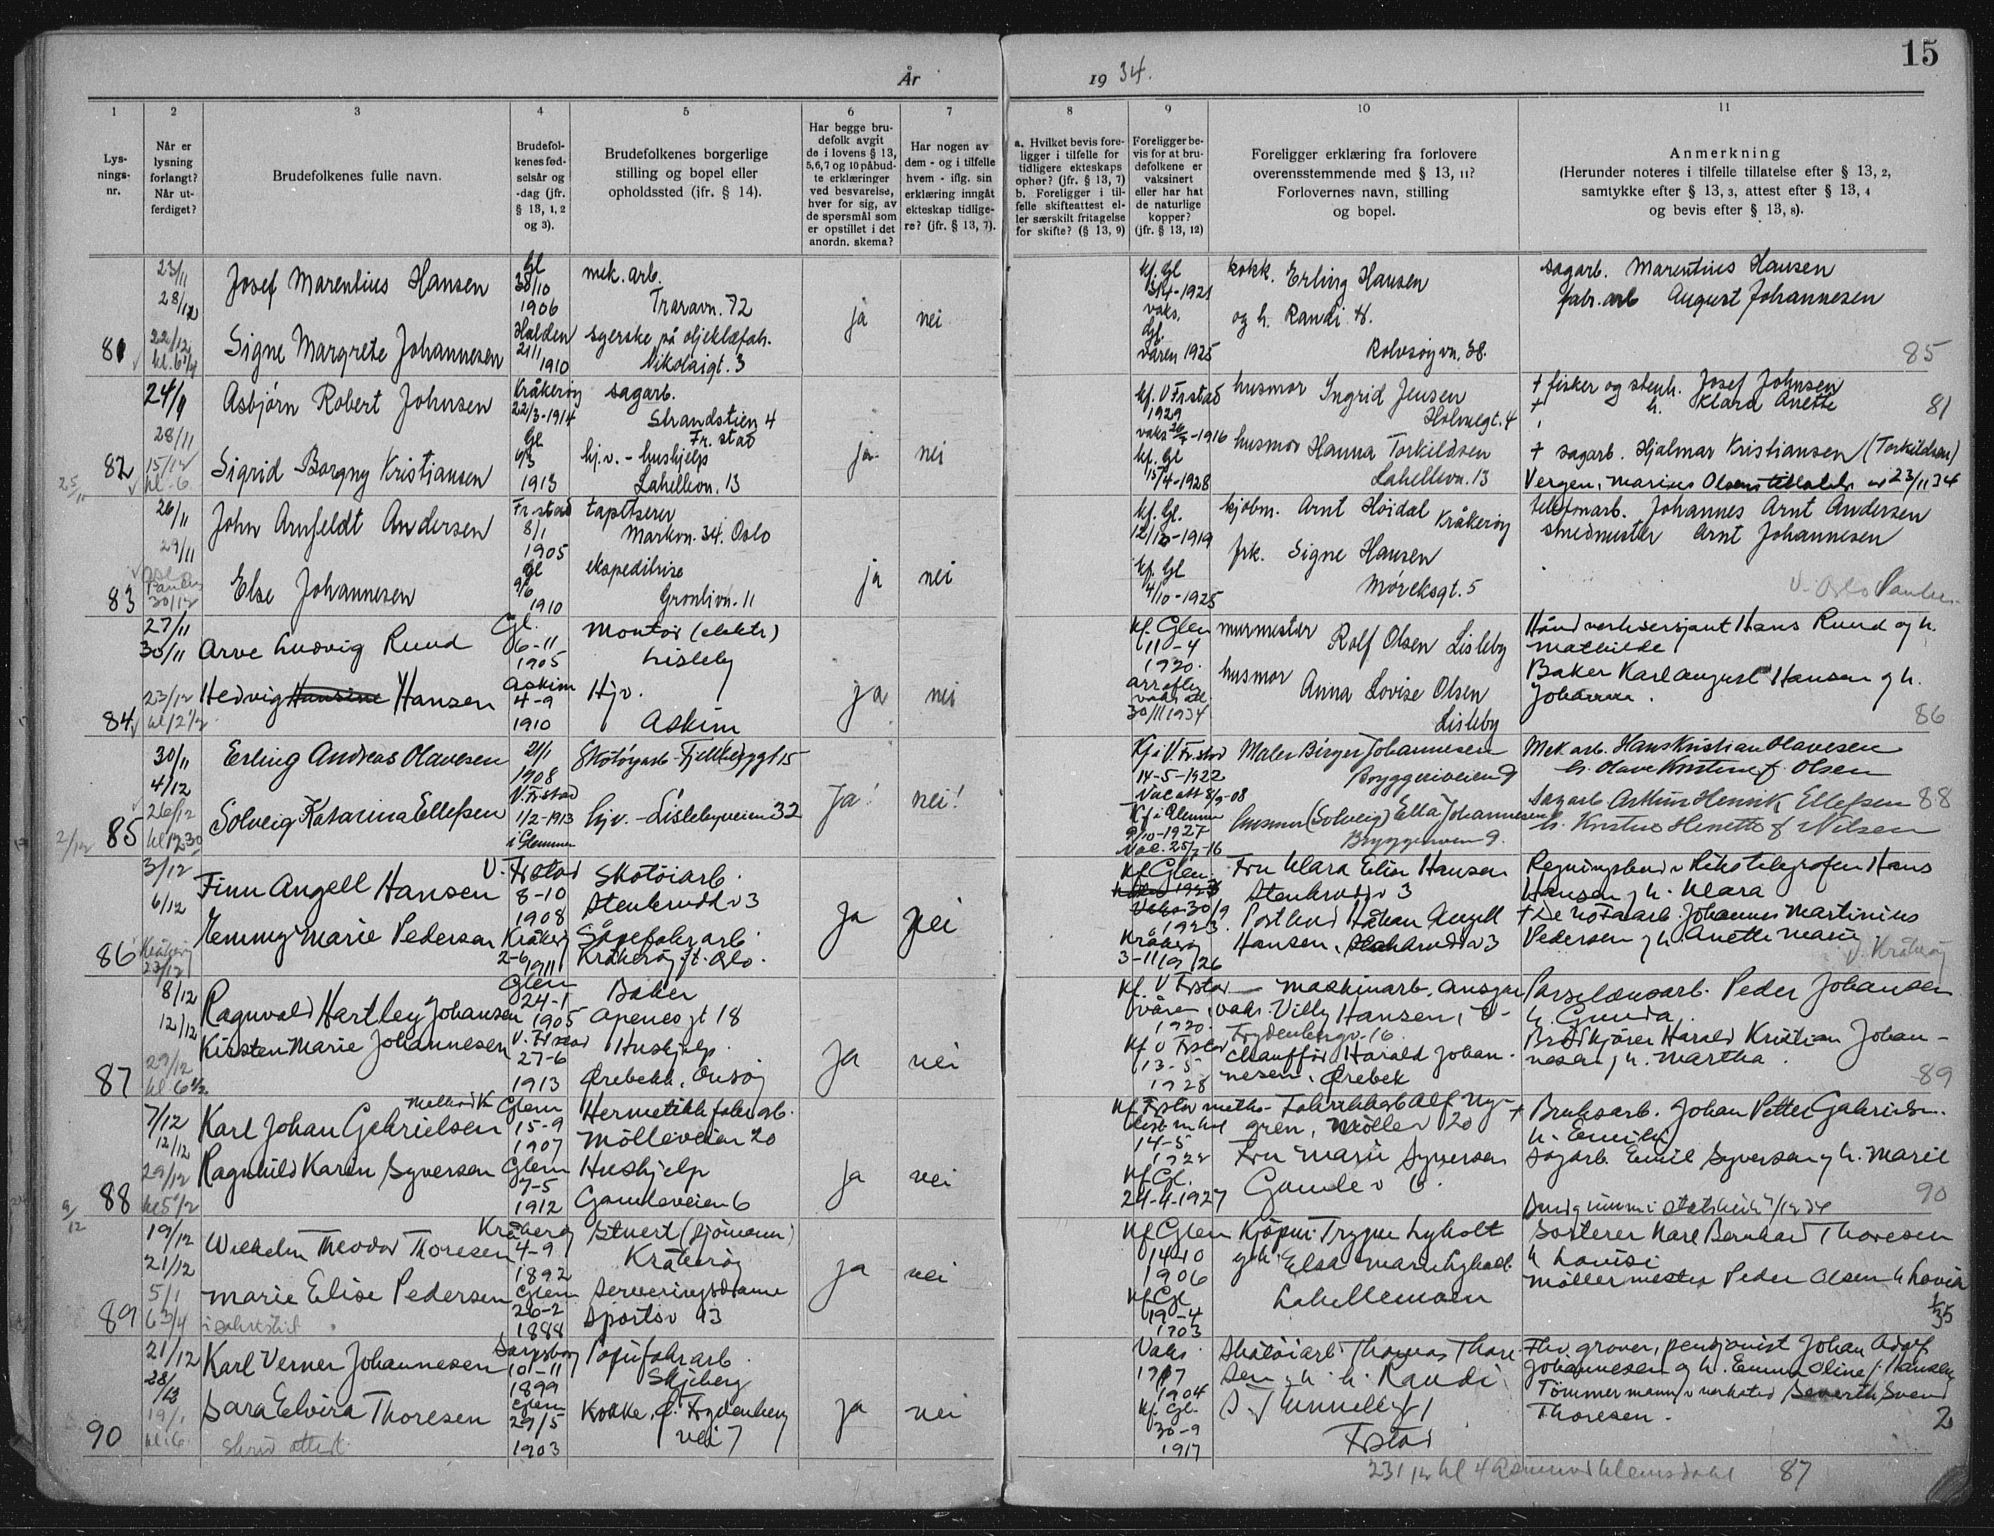 År
1934.
15
1
2
3
4
5
6
7
8
9
10
11
Lys-
nings-
nr.
Når er
lysning
forlangt?
Når ut-
ferdiget?
Brudefolkenes fulle navn.
Brudefol-
kenes fød-
selsår og
-dag (jfr.
§ 13, 1, 2
og 3).
Brudefolkenes borgerlige
stilling og bopel eller
opholdssted (ifr. § 14).
Har begge bru-
defolk avgit
de i lovens § 13,
5,6,7 og 10 påbud-
te erklæringer
ved besvarelse,
hver for sig, av
de spørsmål som
er opstillet i det
anordn. skema?
Har nogen av
dem - og i tilfelle
hvem - iflg. sin
erklæring inngått
ekteskap tidlige-
re? (jfr. § 13, 7).
a. Hvilket bevis fore-
ligger i tilfelle for
tidligere ekteskaps
ophør? (jfr. § 13, 7)
b. Foreligger i til-
felle skifteattest el-
ler særskilt fritagelse
for skifte? (§ 13, 9)
Foreligger be-
vis for at bru-
defolkene er
vaksinert
eller har hat
de naturlige
kopper?
(jfr. § 13, 12)
Foreligger erklæring fra forlovere
overensstemmende med § 13, 11?
Forlovernes navn, stilling
og bopel.
Anmerkning
(Herunder noteres i tilfelle tillatelse efter § 13, 2,
samtykke efter § 13, 3, attest efter § 13, 4
og bevis efter § 13, 8).
81
23/11
28/12
22/12
Josef Marentius Hansen
Signe Margrete Johannesen
Gl
1906
Halden
21/1
1910
mek. arb.
Traravn. 72
syerske på oljeklæfab.
Nikolaigt. 3
ja
nei
kf. Gl
1921
vaks.
Gl.
våren 1925
kokk. Erling Hansen
og h. Randi H.
Rolvsøyvn. 38.
sagarb. Marentius Hansen
fabr. arb August Johannesen
85
82
24/9
28/11
15/12
kl. 6
25/11
Asbjörn Robert Johnsen
Sigrid Borgny Kristiansen
Kråkerøy
22/3-1914
Gl
6/3
1913
sagarb.
Strandstien 4
Fr. stad
hj.v. - hushjelp
Lahellevn. 13
ja
nei
kf. V Fr.stad
1929
vaks 1916
kf. Gl
15/4-1928
husmor Ingrid Jensen
Holmegt. 4
husmor Hanna Torkildsen
Lahellevn. 13
+ fisker og stenh. Josef Johnsen
+ h. Klara Anette
81
+ sagarb. Hjalmar Kristiansen (Torkildsen)
Vergen, Marius Olsens tillatelse av 23/11 34
83
26/11
29/11
30/12
John Arnfeldt Andersen
Else Johannesen
Fr.stad
8/1
1905
Gl
9/6
1910
tapetserer
Markvn. 34. Oslo
ekspeditrise
Grønlivn. 11
ja
nei
kf. Gl.
12/10-1919
kf. Gl
4/10-1925
kjøbm. Arnt Høidal Kråkerøy
frk. Signe Hansen
Møveksgt. 5
telefonarb. Johannes Arnt Andersen
smedmester Arnt Johannesen
V. Oslo
84
27/11
30/11
23/12
kl 2 1/2
Arve Ludvig Ruud
Hedvig Hansine Hansen
Gl.
6-11
1905
Askim
4-9
1910
Montør (elektr)
Lisleby
Hjv.
Askim
ja
nei
Kf. Glem
11-4
1920.
30/11 1934
murmester Rolf Olsen Lisleby
husmor
Anna Lovise Olsen
Lisleby
Håndverkersersjant Hans Ruud og h.
Mathilde
Baker Karl August Hansen og h.
Johanne.
86
85
30/11
4/12
26/12
kl 12 30
2/12
Erling Andreas Olavesen
Solveig Katarina Ellefsen
21/1
1908
V. Fr.stad
1/2-1913
i Glemmen
Skotøyarb. Fjellbergygt 15
hjv. - Lislebyveien 32
Ja!
nei!
Kf i V. Fr.stad
14-5-1922
Vac att 8/9-08
Kf i Glemm
9/10-1927
Vac. 25/7-16
Maler Birger Johannesen
Bryggeriveien 9
husmor (Solveig) Ella Johannesen
Bryggeriveien 9.
Mek arb. Hans Kristian Olavesen
h. Olave Kristine f. Olsen
Sagarb Arthur Henrik Ellefsen 88
h. Kristine Henette f Nilsen
86
3/12
6/12
Kråkerøy
23/12
Finn Angell Hansen
Jemmy Marie Pedersen
V. Frstad
8-10
1908
Kråkerøy
2-6
1911
Skotøiarb.
Stenbrudd v 3
Såpefabr arb.
Kråkerøy, f. t. Oslo.
Ja
nei
Kf Glem
30/9
1923.
Kråkerøy
3-11 1926
Fru Klara Elise Hansen
Stenbrudd v 3
Postbud Håkan Angell
Hansen, Stenbrudd v 3
Regningsbud v Rikstelegrafen Hans
Hansen og h. Klara
Pedersen og h Anette Marie
V. Kråkerøy
87
8/12
12/12
29/12
kl 6 1/2
Ragnvald Hartley Johansen
Kirsten Marie Johannesen
Glem
24-1
1905
V. Frstad
27-6
1913
Baker
Apenes gt 18
Hushjelp.
Ørebekk, Onsøy
Ja
nei
Kf. V Frstad
våren
1920.
Kf V Frstad
13-5
1928
Maskinarb. Ansgar
Villy Hansen,
Frydenbergv. 16.
Chauffør Harald Johan-
nesen, Ørebek
Peder Johansen
h. Gunda
Brødkjører Harald Kristian Johan-
nesen og h. Martha.
89
88
7/12
12/12
29/12
kl 5 1/2
9/12
Karl Johan Gabrielsen
Ragnhild Karin Syversen
Glem
15-9
1907
Glem
7-5
1912
Hermetikkfabr arb.
Mölleveien 20
Hushjelp
Gamleveien 6
ja
nei
14-5
1922
Kf. Gl.
24-4-1927
Fabrikkarb Alf Ny-
gren, Möllev 20
Fru Marie Syversen
Gamlev 6.
+ Bruksarb. Johan Petter Gabrielsen.
h. Emilie
Sagarb. Emil Syversen og h. Marie
90
89
19/12
21/12
5/1
6 3/4
Wilhelm Theodor Thoresen
Marie Elise Pedersen
Kråkerøy
4-9
1892
Glem
26-2
1888
Stuert (sjömann)
Kråkerøy
Serveringsdame
Sportsv 13
ja
nei
Kf Glem
14-10
1906
Kf Gl
19-4
1903
Kjöpm. Trygve Lyholt
og h. Elsa Marie Lyholt
Lahellemoen
Sorterer Karl Bernhard Thoresen
h Lovise
Möllermester Peder Olsen h Lovise
1/35
90
21/12
28/12
19/1
kl. 6
Karl Verner Johannesen
Sara Elvira Thoresen
Skrive attest
Sarpsborg
10-11
1899
Glem
29/5
1903
Papirfabr arb.
Skjeberg
Kokke, Ø. Frydenberg
vei 7
ja
nei
Vaks
1904
Kf. Gl.
30-9
1917
Skotøiarb. Thomas Thore-
sen og h. Randi
Frstad
Fhv. graver, pensjonist Johan Adolf
Johannesen og h. Emma Oline f. Hansen
Tömmermann v verksted Severth Svend
Thoresen.
2
23/12 kl 4 87